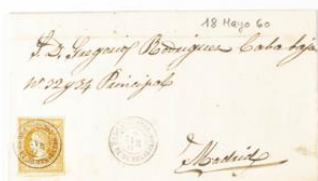 18 Mayo 60
S. D. Gregorio Rodriguez Caba baja
nº 32 y 34 Principal
Madrid